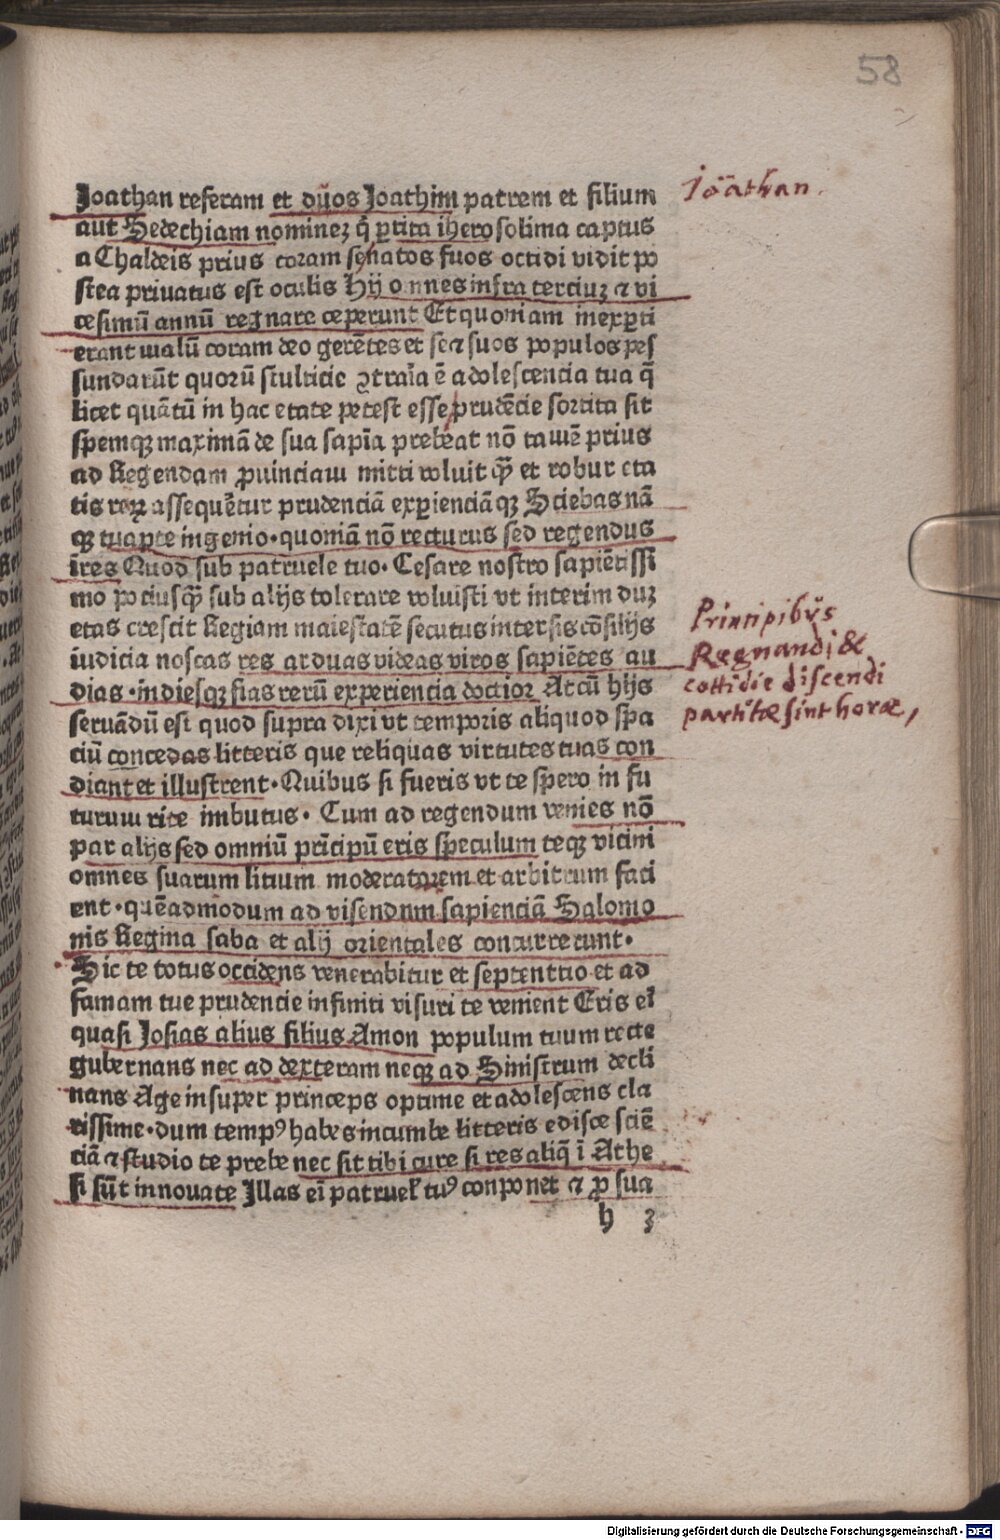 58
Joathan referam et duos Joathim patrem et filium
Joathan.
aut Sedechiam nominez q̄ ꝑtita iherosolima captus
a Chaldeis prius coram se natos suos occidi vidit po
stea privatus est oculis Hij omnes infra terciuz ⁊ vi
cesimū annū regnare ceperunt Et quoniam inexꝑti
erant malū coram deo gerētes et se ⁊ suos populos pes
sundarūt quorū stulticie ꝯtraīa ē adolescencia tua q̄
licet quātū in hac etate potest esse prudēcie sortita sit
spemqꝫ maximā de sua sapīa prebeat nō tamē prius
ad Regendam ꝓuinciam mitti voluit qꝫ̄ et robur eta
tis roꝝ assequētur prudenciā exꝑienciāqꝫ Sciebas nā
qꝫ tuapte ingenio · quoniā nō recturus sed regendus
ires Quod sub patruele tuo · Cesare nostro sapiētissi
mo pociusqꝫ̄ sub alijs tolerare voluisti vt interim duꝫ
etas crescit Regiam maiestatē secutus intersis cōsilijs
Principibus
iudicia noscas res arduas videas viros sapiētes au
Regnandi &
dias · indiesqꝫ fias rerū experiencia doctior At cū hijs
cottidie discendi
seruādū est quod supra dixi vt temporis aliquod spa
partitæ sint horæ,
ciū concedas litteris que reliquas virtutes tuas con
diant et illustrent · Quibus si fueris vt te spero in fu
turum rite imbutus · Cum ad regendum venies nō
par alijs sed omniū prīcipū eris speculum teqꝫ vicini
omnes suarum litium moderatorem et arbitrum faci
ent · quēadmodum ad visendum sapienciā Salomo
nis Regina saba et alij orientales concurrerunt ·
Sic te totus occidens venerabitur et septentrio et ad
famam tue prudencie infiniti visuri te venient Eris ei
quasi Josias alius filius Amon populum tuum recte
gubernans nec ad dexteram neqꝫ ad Sinistrum decli
nans Age insuper princeps optime et adolescens cla
rissime · dum tempꝰ habes incumbe litteris edisce sciē
ciā ⁊ studio te prebe nec sit tibi cure si res aliq̄ ī Athe
si sūt innovate Illas eī patruel tuꝰ conponet ⁊ ꝓ sua
h 3
Digitalisierung gefördert durch die Deutsche Forschungsgemeinschaft - DFG